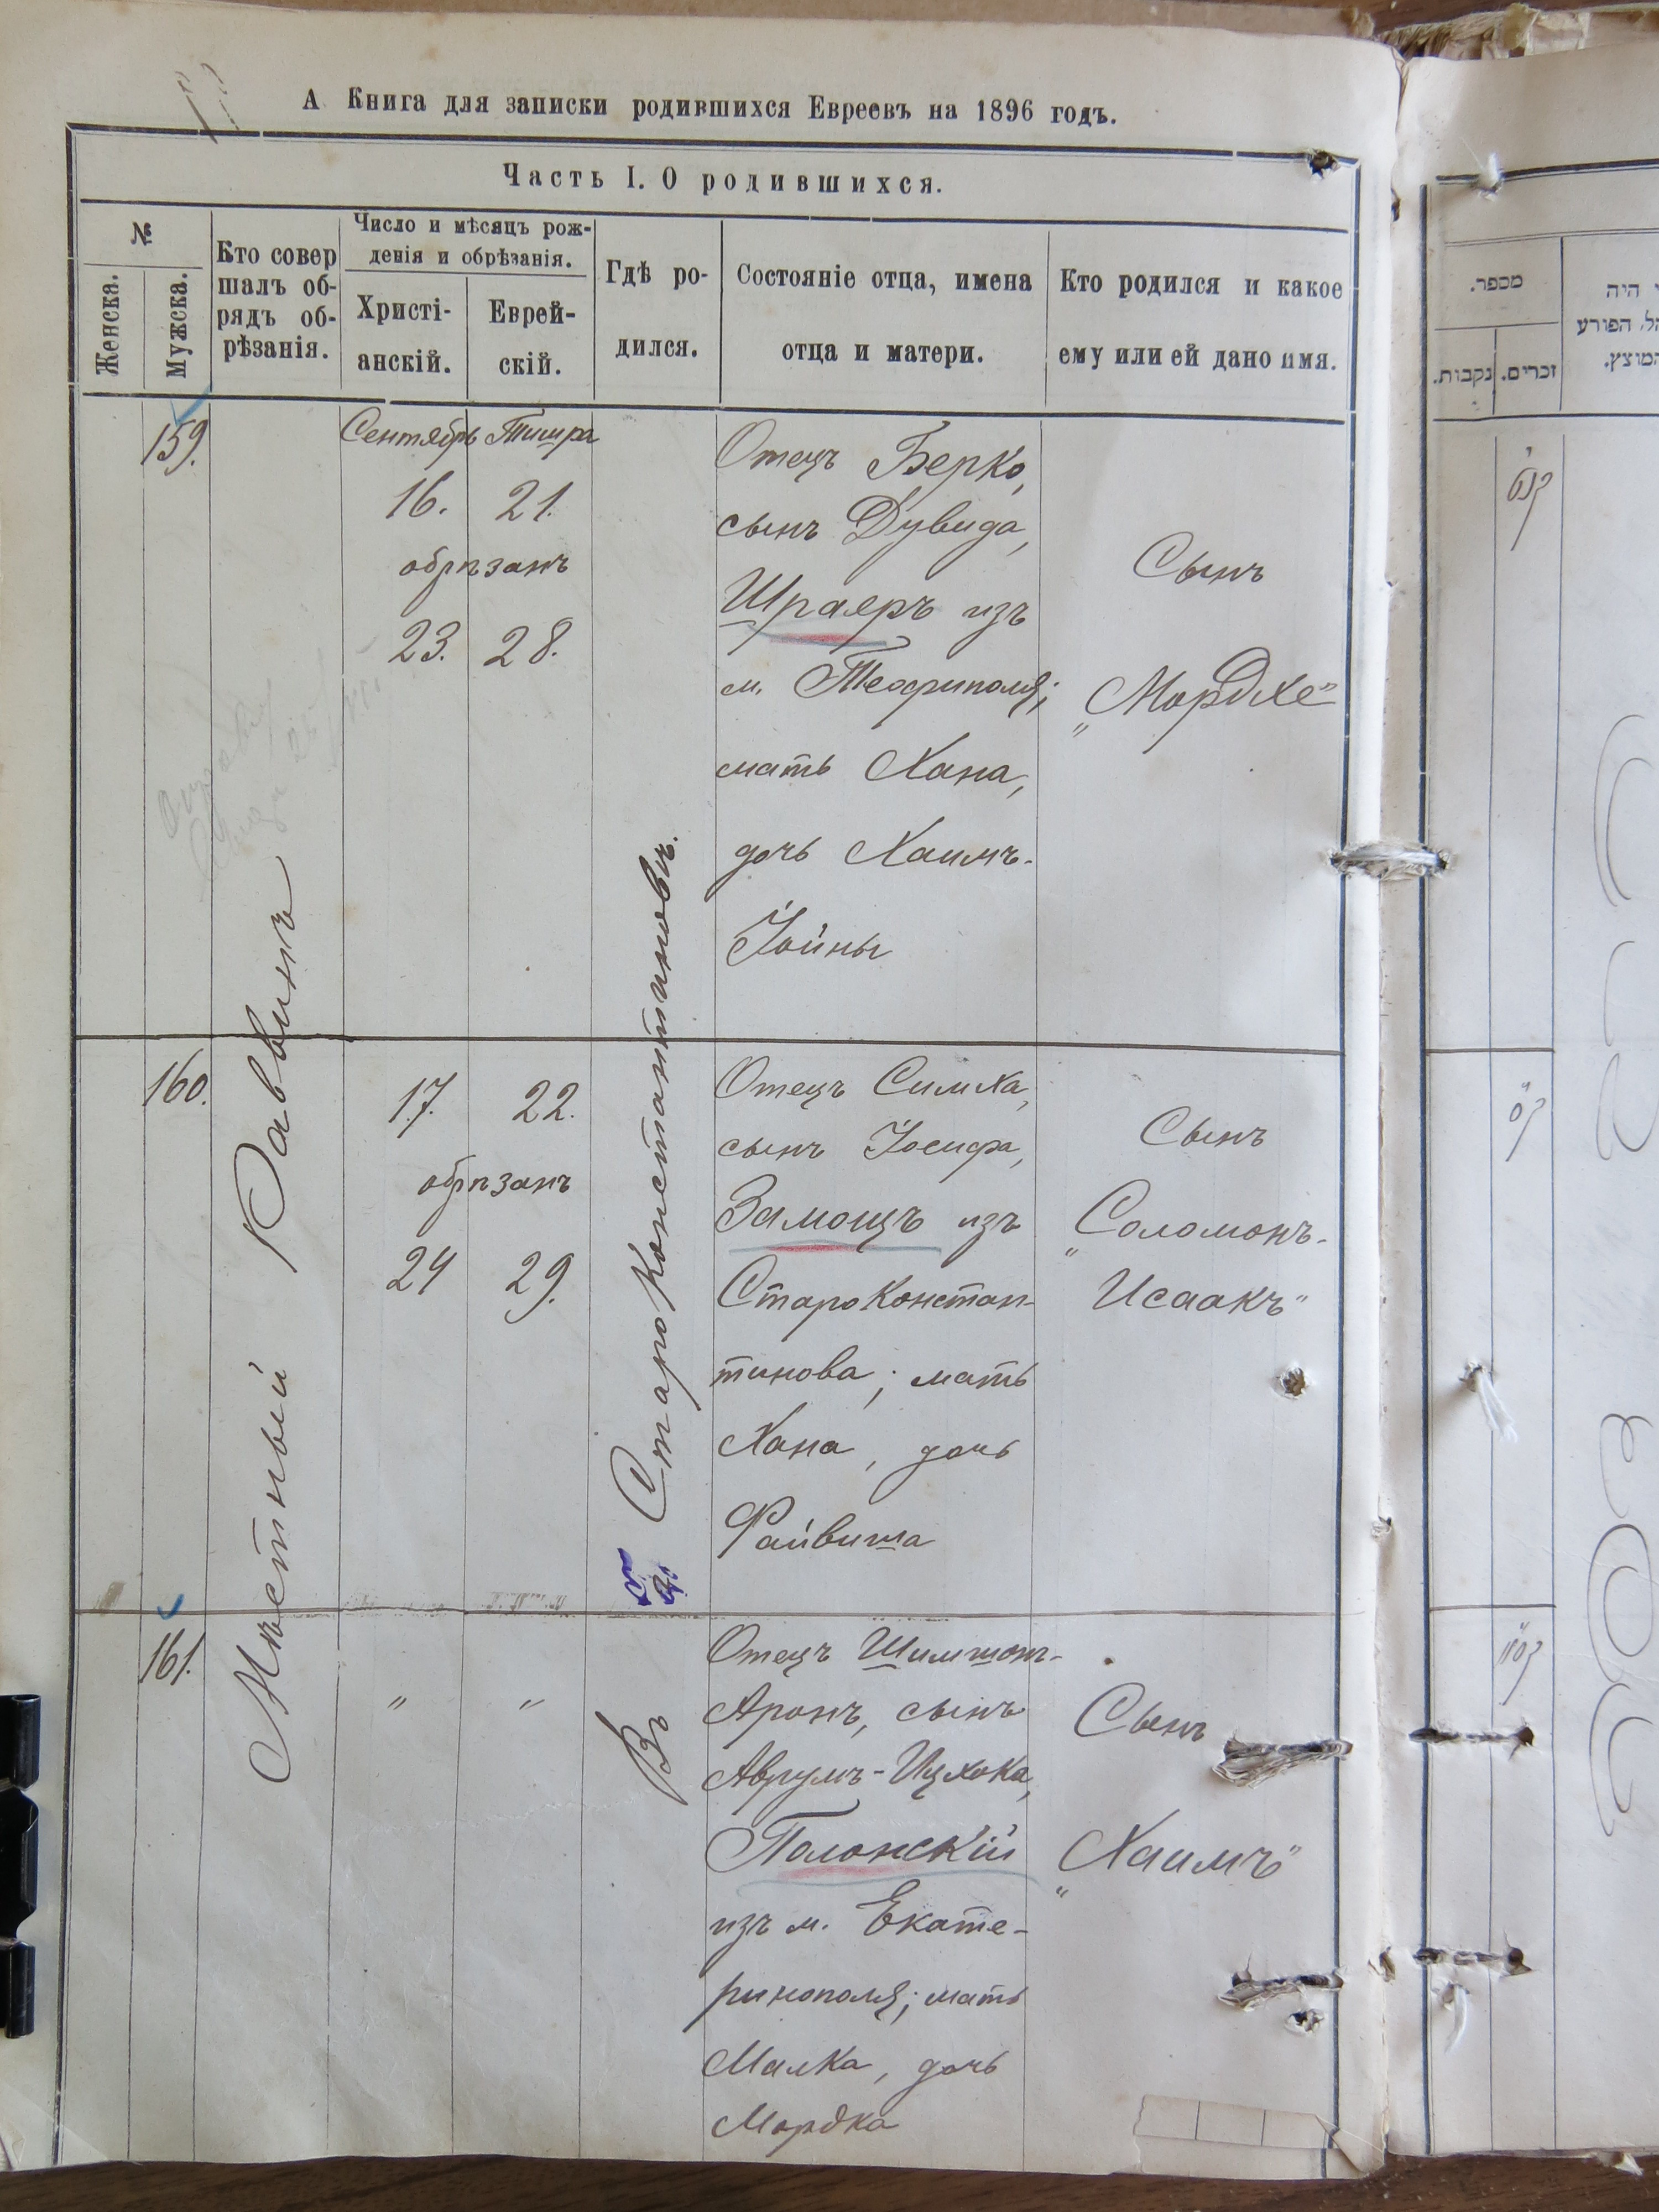 А Книга для записки родившихся Евреевъ на 1896 годъ.
Часть I. О родившихся.
№
Женска.
Мужска.
Кто совер
шалъ об-
рядъ об-
рѣзанія.
Число и мѣсяцъ рож-
денія и обрѣзанія.
Христі-
анскій.
Еврей-
скій.
Гдѣ ро-
дился.
Состояніе отца, имена
отца и матери.
Кто родился и какое
ему или ей дано имя.
159.
Сентябрь Тишра
16. 21.
обрѣзанъ
23. 28.
Отецъ Берко,
сынъ Дувида,
Шраяръ изъ
м. Теофиполя;
мать Хана,
дочь Хаимъ-
Іойны
Сынъ
„Мордхе"
Мѣстный Раввинъ
Въ Староконстантиновѣ.
160.
17. 22.
обрѣзанъ
24 29.
Отецъ Симха,
сынъ Іосифа,
Замощъ изъ
Староконстан-
тинова; мать
Хана, дочь
Файвиша
Сынъ
„Соломонъ-
Исаакъ"
161.
" "
Отецъ Шимшон-
Аронъ, сынъ
Аврумъ-Ицхока,
Полонскій
изъ м. Екате-
ринополя; мать
Малка, дочь
Мордка
Сынъ
„Хаимъ"
מספר.
נקבות.
זכרים.
י היה
הפורע
המוצץ.